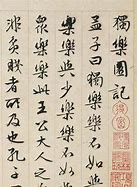 獨樂園記
孟子曰獨樂樂不如與
樂樂與少樂樂不如與
眾樂樂此王公大人之
非貧賤者所及也孔子